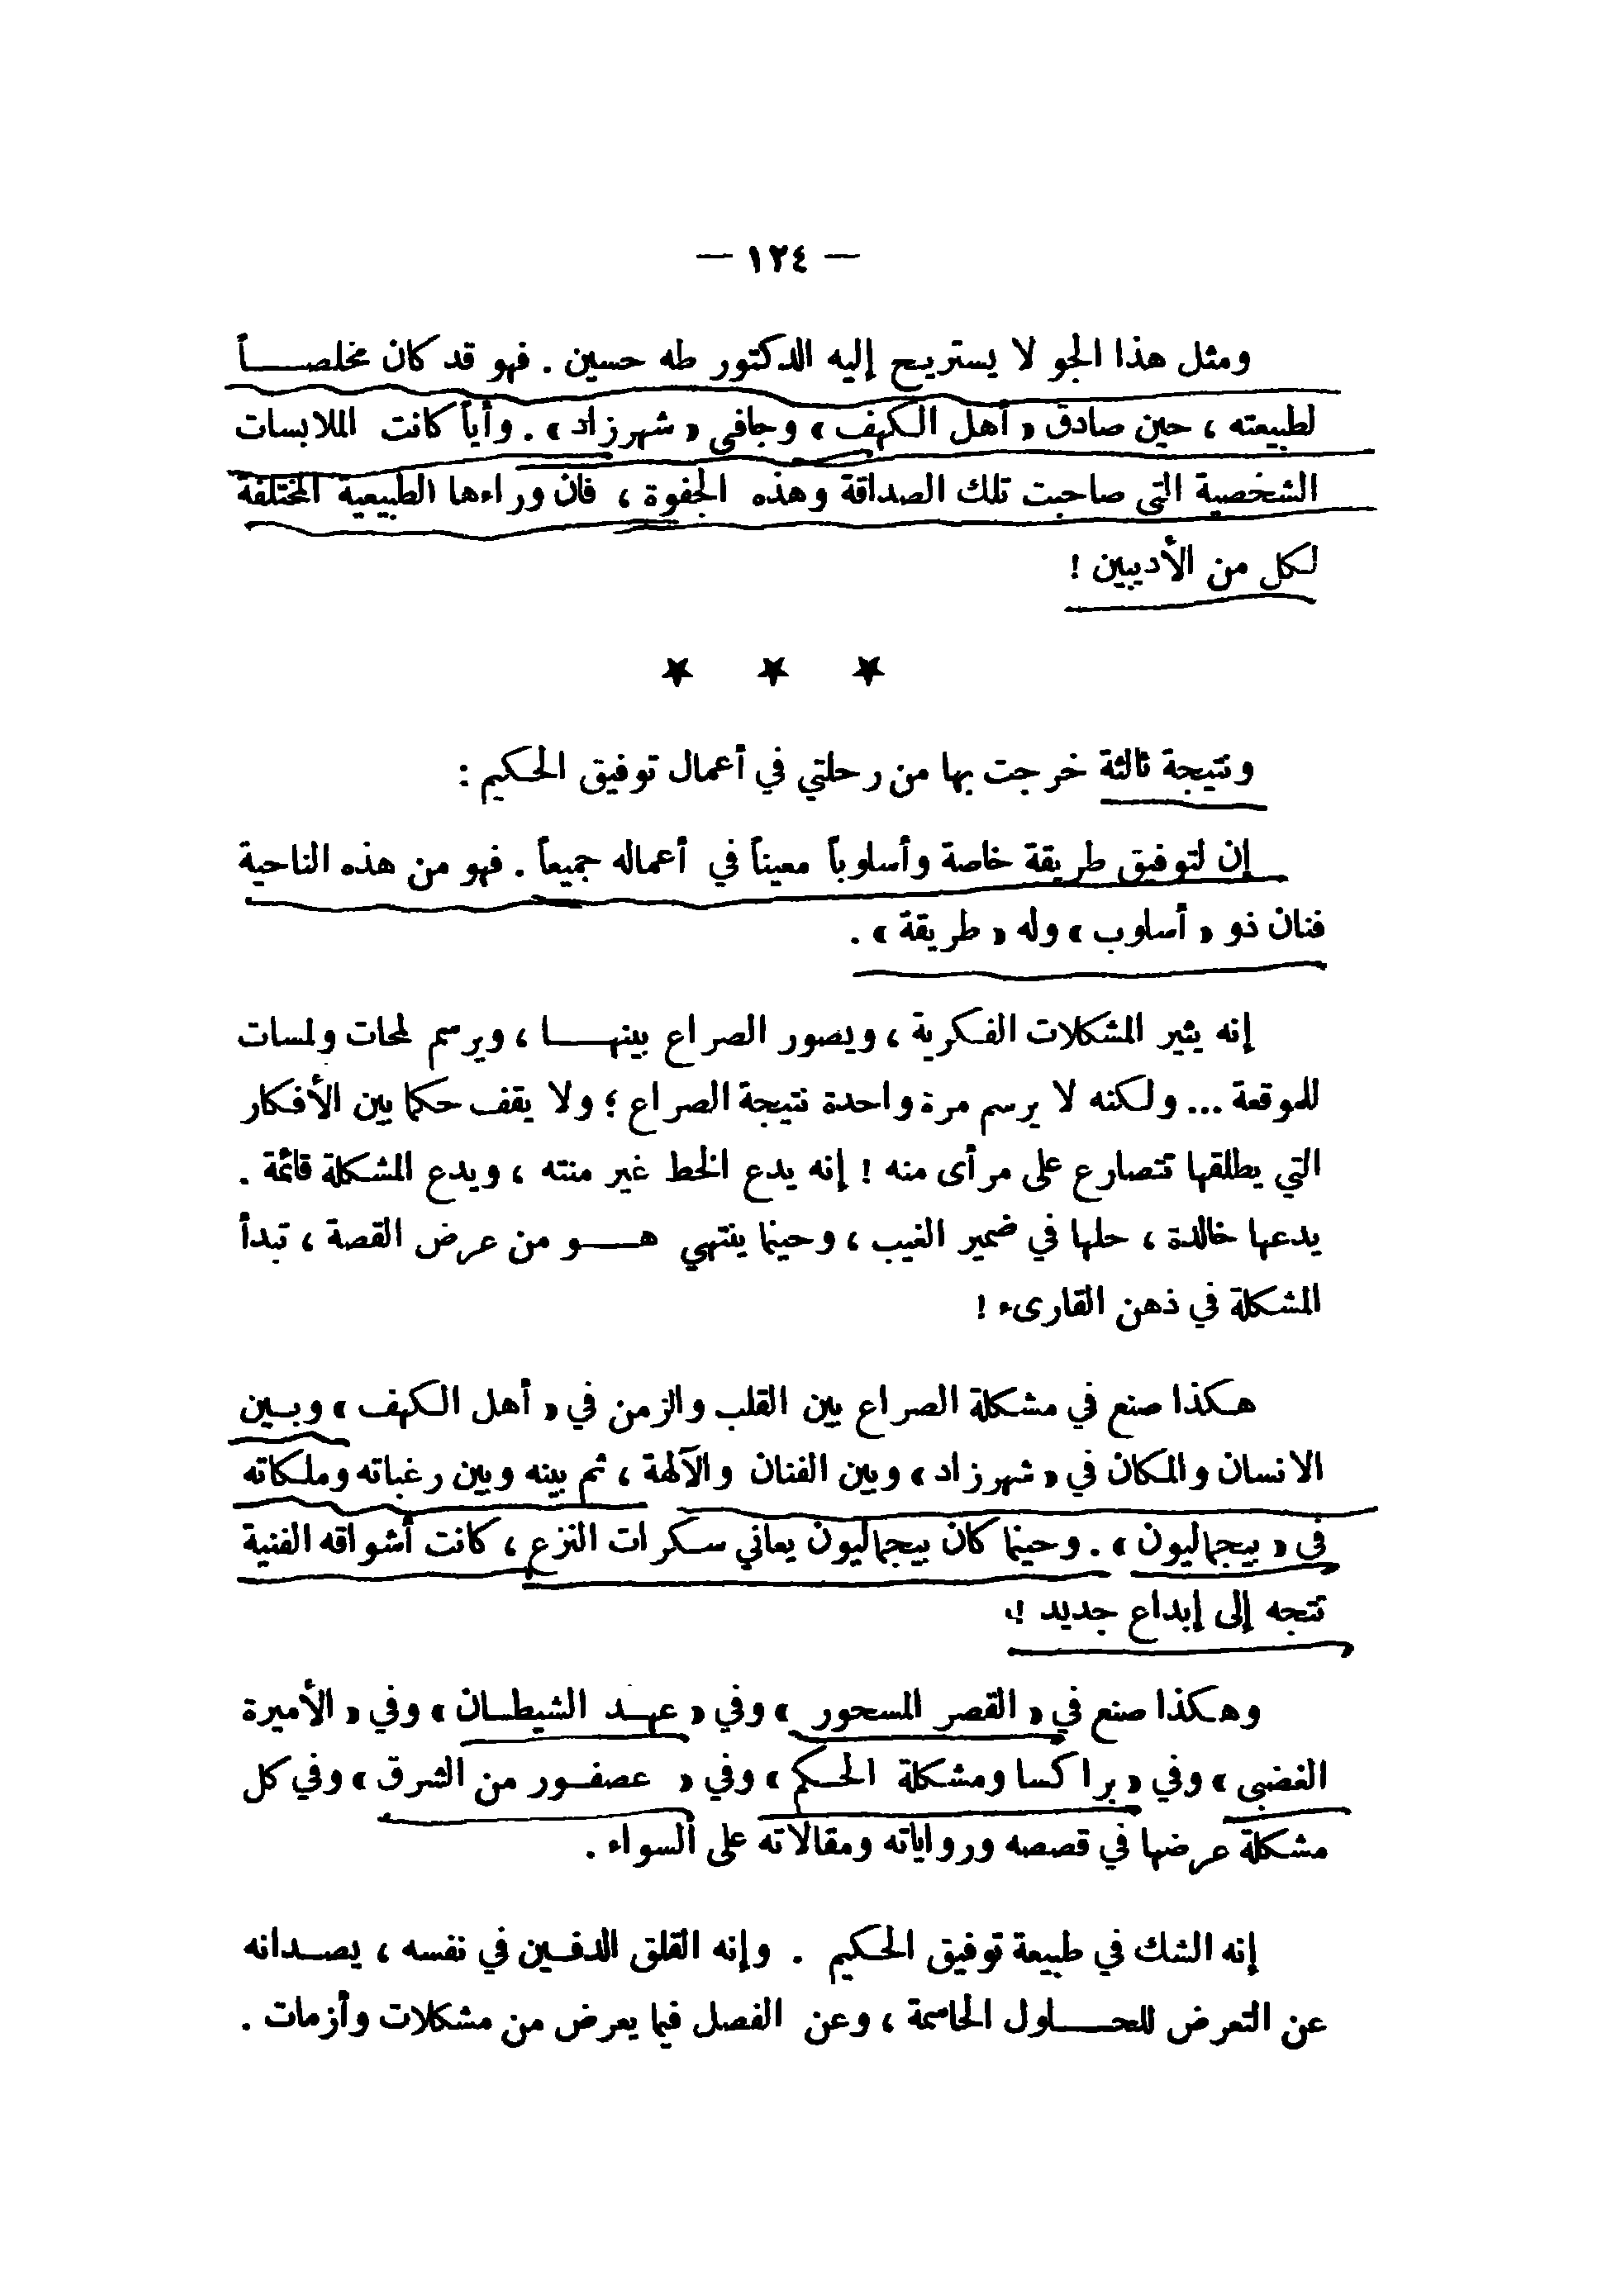 — ١٢٤ —
ومثل هذا الجو لا يستريح إليه الدكتور طه حسين . فهو قد كان مخلصـــاً
لطبيعته ، حين صادق « أهل الكهف » وجافى « شهرزاد » . وأياً كانت الملابسات
الشخصية التي صاحبت تلك الصداقة وهذه الجفوة ، فان وراءها الطبيعية المختلفة
لكل من الأديبين !
★ ★ ★
ونتيجة ثالثة خرجت بها من رحلتي في أعمال توفيق الحكيم :
إن لتوفيق طريقة خاصة وأسلوباً معيناً في أعماله جميعاً . فهو من هذه الناحية
فنان ذو « أسلوب » وله « طريقة » .
إنه يثير المشكلات الفكرية ، ويصور الصراع بينهـــا ، ويرسم لمحات ولمسات
للموقعة ... ولكنه لا يرسم مرة واحدة نتيجة الصراع ؛ ولا يقف حكما بين الأفكار
التي يطلقها تتصارع على مرأى منه ! إنه يدع الخط غير منته ، ويدع المشكلة قائمة .
يدعها خالدة ، حلها في ضمير الغيب ، وحينما ينتهي هـــو من عرض القصة ، تبدأ
المشكلة في ذهن القارىء !
هكذا صنع في مشكلة الصراع بين القلب والزمن في « أهل الكهف » وبــين
الانسان والمكان في « شهرزاد » وبين الفنان والآلهة ، ثم بينه وبين رغباته وملكاته
في « بيجماليون » . وحينما كان بيجماليون يعاني سكرات النزع ، كانت أشواقه الفنية
تتجه إلى إبداع جديد !
وهكذا صنع في « القصر المسحور » وفي « عهـد الشيطـان » وفي « الأميرة
الغضبى » وفي « براكسا ومشكلة الحكم » وفي « عصفــور من الشرق » وفي كل
مشكلة عرضها في قصصه ورواياته ومقالاته على السواء .
إنه الشك في طبيعة توفيق الحكيم . وإنه القلق الدفــين في نفسه ، يصــدانه
عن التعرض للحـــلول الحاسمة ، وعن الفصل فيما يعرض من مشكلات وأزمات .